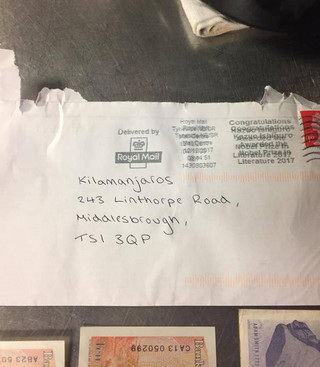 Delivered by
Royal Mail
Royal Mail
Congratulations
Kazuo Ishiguro
Awarded the
Nobel Prize in
Literature 2017
Kilamanjaros
243 Linthorpe Road,
Middlesbrough,
TS1 3QP
AB23 50
CA13 050299